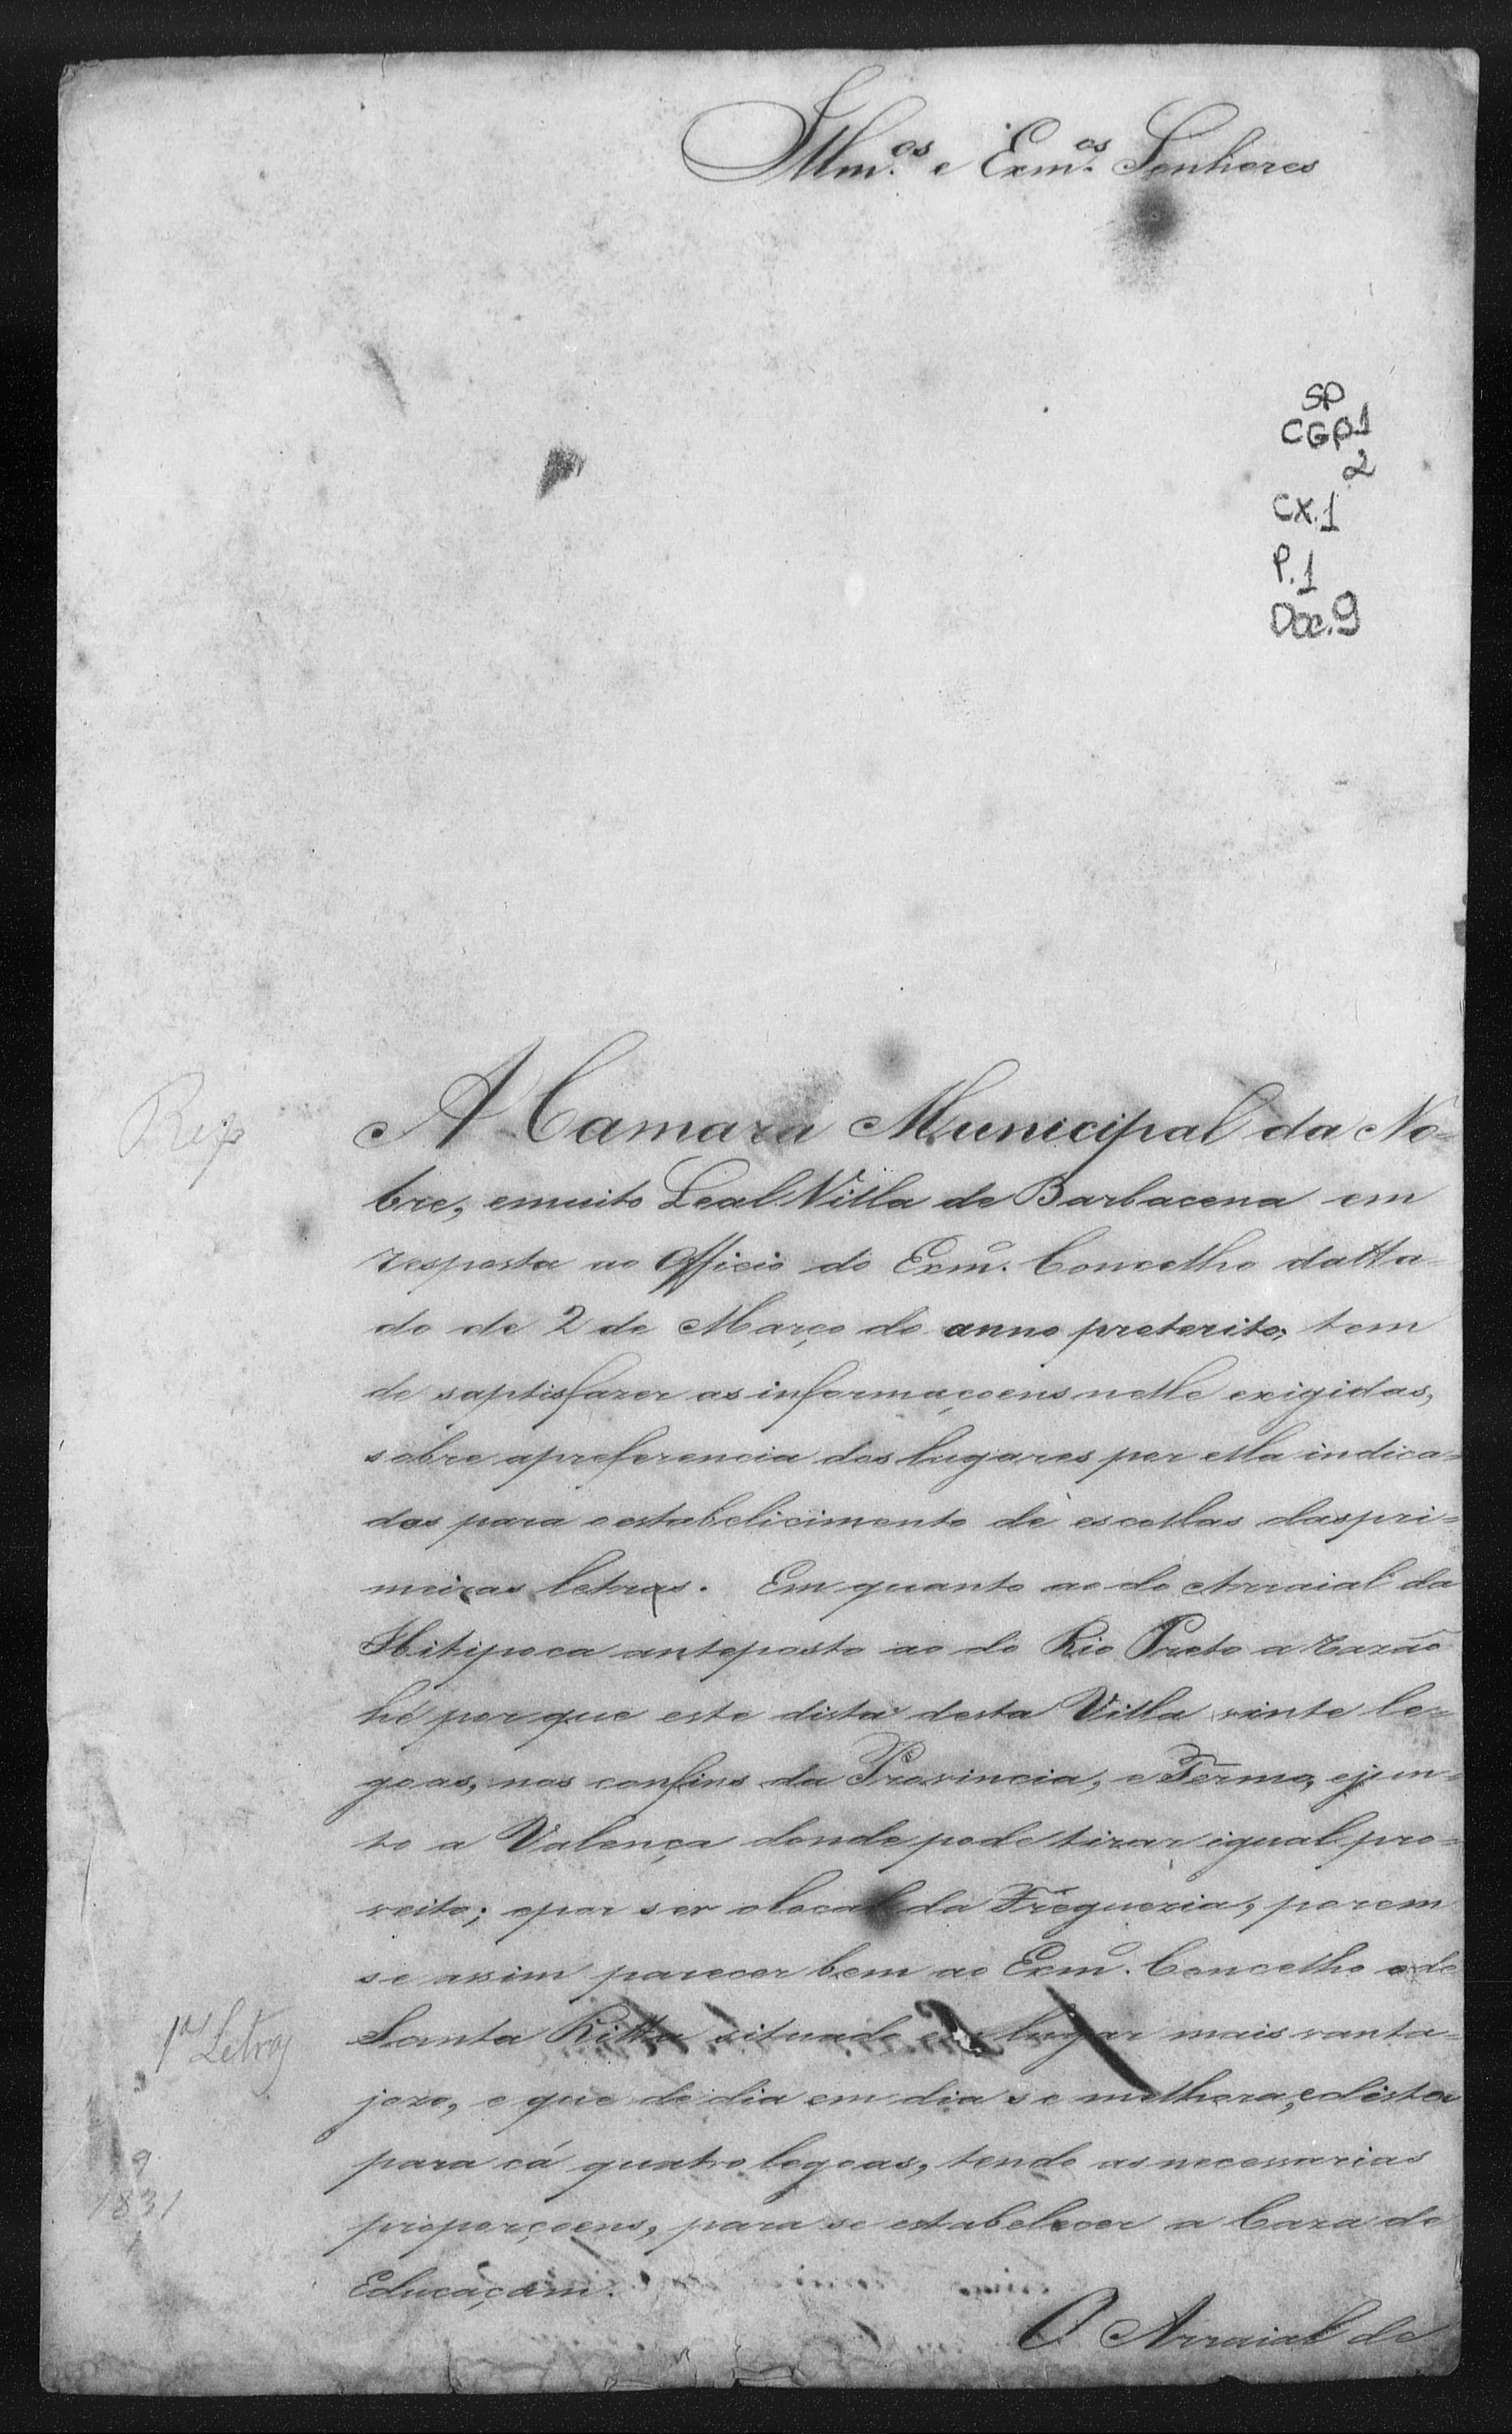 Illm.os e Exm.os Senhores
SP
CGP.1
2
CX.1
P.1
Doc.9
A Camara Municipal da No=
bre, emuito Leal Villa de Barbacena em
resposta ao Officio do Exmº. Concelho datta=
do de 2 de Março do anno preterito; tem
de saptisfazer as informaçoens nelle exigidas,
sobre apreferencia dos lugares por ella indica=
dos para oestabelicimento de escollas daspri=
meiras letras. Em quanto ao do Arraial da
Ibitipoca anteposto ao do Rio Preto a razão
hé por que este dista desta Villa vinte le=
goas, nos confins da Provincia, e Termo, ejun=
to a Valença donde pode tirar igual pro=
veito; epor ser olocal da Fregueria, porem
se assim parecer bem ao Exmº. Concelho o de
Santa Ritta situado em lugar mais vanta=
jozo, e que de dia em dia se milhora, edista
para cá quatro legoas, tendo as necessarias
proporçoens, para se estabelecer a Caza de
Educaçam.
O Arraial de
1as Letras
9
1831